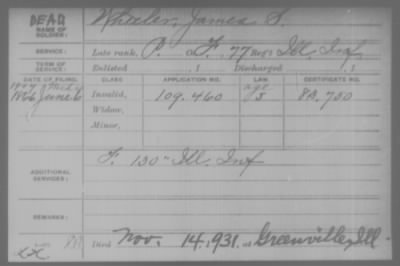 DEAD
NAME OF SOLDIER: Wheeler, James S.
SERVICE: Late rank, P. of F. 77 Reg't Ill. Inf
TERM OF SERVICE: Enlisted , 1 Discharged , 1
DATE OF FILING. CLASS. APPLICATION NO. LAW. CERTIFICATE NO.
1866 June 6 Invalid, 109.460 age 5 82.750
Widow,
Minor,
ADDITIONAL SERVICES: F. 130" Ill. Inf
REMARKS:
Died Nov. 14, 1931. at Greenville, Ill.